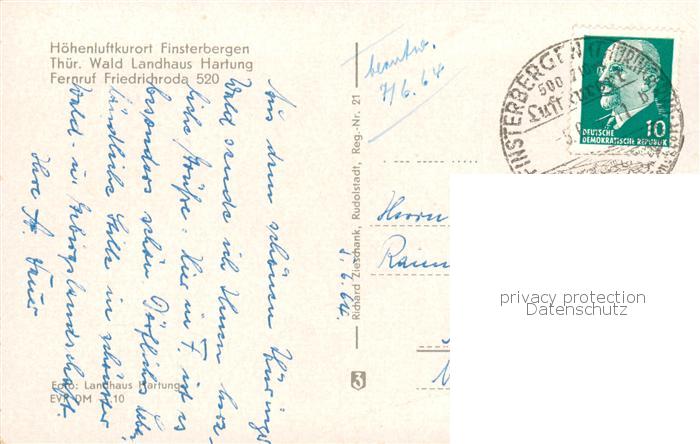 Höhenluftkurort Finsterbergen
Thür. Wald Landhaus Hartung
Fernruf Friedrichroda 520
beantw.
7/6. 64
Aus dem schönen Thüringer
Wald sende ich Ihnen herz-
liche Grüße. Hier in F. ist es
besonders schön. Dörfliches Leben
ländliche Stille in schönster
Wald- u. Gebirgslandschaft.
Ihre
5. 6. 64.
Foto: Landhaus Hartung
EVP DM 10
Richard Zieschank, Rudolstadt, Reg.-Nr. 21
3
FINSTERBERGEN (THÜRINGER WALD)
500
Luftkurort
DEUTSCHE
DEMOKRATISCHE REPUBLIK
10
Herrn
privacy protection
Datenschutz